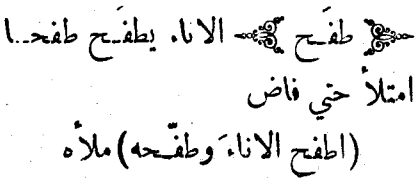 ﴿ طفَح ﴾ الاناء يطفَح طفحا
امتلأ حتي فاض
(اطفح الاناءَ وطفّحه) ملأه